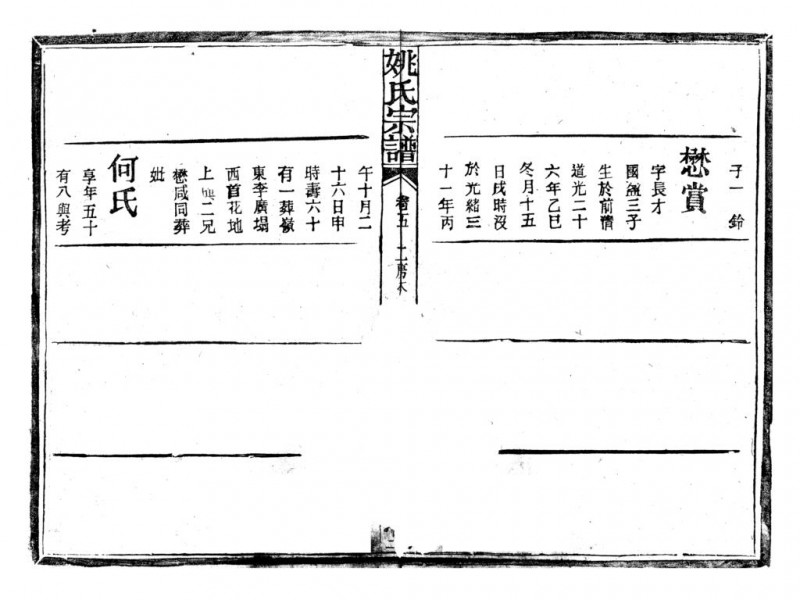 子一鈴
懋賞
字長才
國鑑三子
生於前清
道光二十
六年乙巳
冬月十五
日戌時沒
於光緒三
十一年丙
姚氏宗譜
卷五
午十月二
十六日申
時壽六十
有一葬嶺
東李廣塲
西首花地
上與二兄
懋咸同葬
妣
何氏
享年五十
有八與考